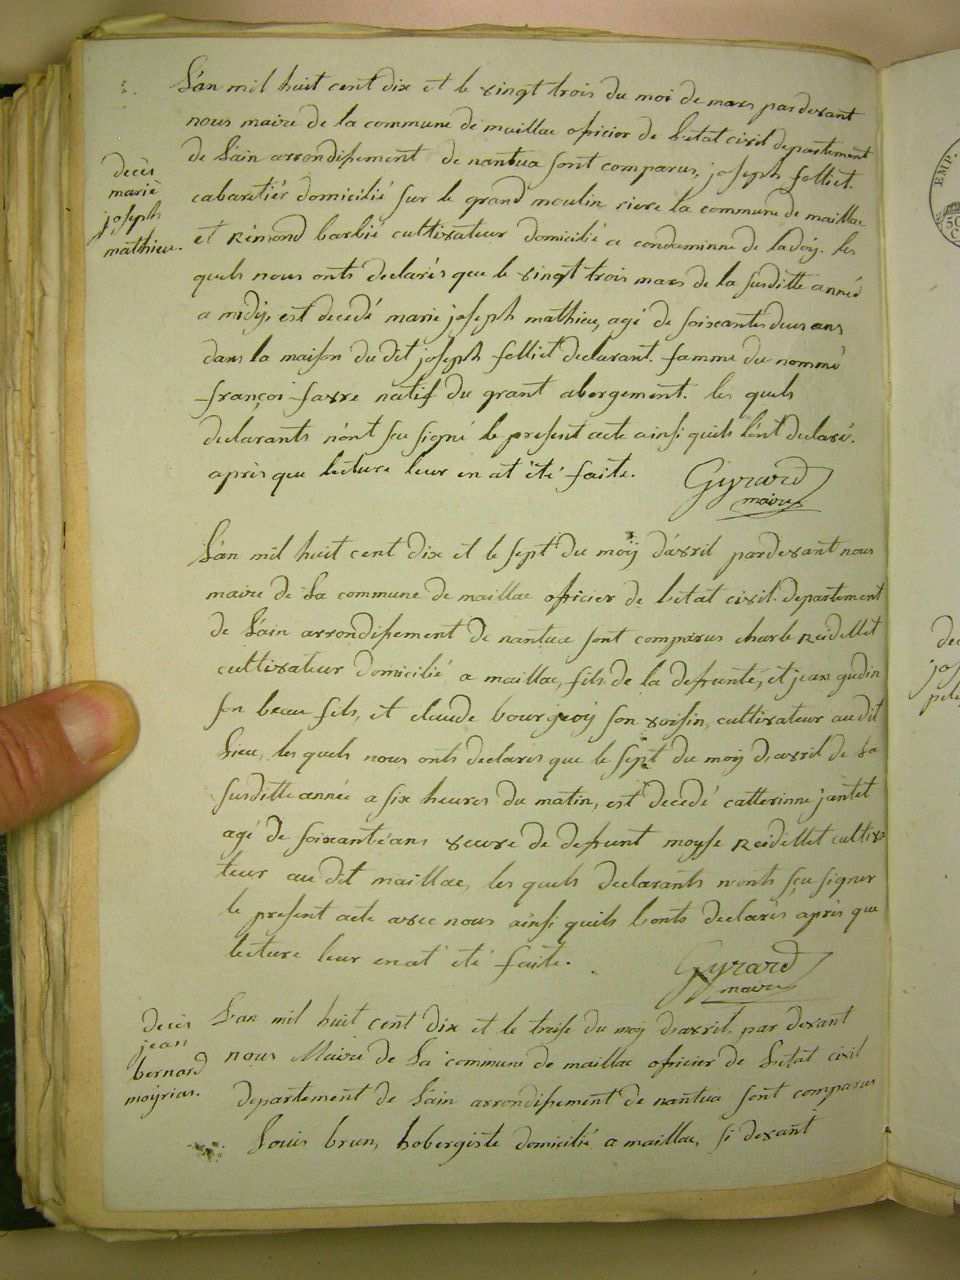 L'an mil huit cent dix et le vingt trois du moi de mars par devant
nous maire de la commune de maillac oficier de l'etat civil departement
de Lain arrondissement de nantua sont comparus, joseph folliet
decès
cabaretiér domicilié sur le grand moulin riere la commune de maillac
marie
joseph
et Rémond barbié cultivateur domicilié a condaminne de ladoÿ. les
mathieu.
quels nous onts declarés que le vingt trois mars de la susditte année
a midÿ, est decedé marie joseph mathieu, agé de soixantes deux ans
dans la maison du dit joseph folliet declarant. famme du nommé
françoi favre natif du grant abergement. les quels
declarants n'ont seu signé le present acte ainsi quils l'ont declaré.
après que lecture leur en at été faite.
Gÿrard
maire
L'an mil huit cent dix et le sept du moÿ d'avril par devant nous
maire de La commune de maillac oficier de l'etat civil. departement
de Lain arrondissement de nantua sont comparus charle Reidellet
cultivateur domicilié a maillac, fils de la defunte, et jean gudin
son beau fils, et claude bourgeoÿ son voisin, cultivateur au dit
Lieu, les quels nous onts declarés que le sept du moÿ d'avril de La
susditte année a six heures du matin, est decedé catterinne jantet
agé de soixanté ans veuve de defunt moyse Reidellet cultiva
teur au dit maillac, les quels declarants n'onts sçu signer
le present acte avec nous ainsi quils l'onts declarés après que
lecture leur en at été faite.
Gÿrard
maire
Decès
jean
bernard
moÿrias.
L'an mil huit cent dix et le treise du moÿ d'avril. par devant
nous Maire de La commune de maillac oficier de L'etat civil
departement de Lain arrondissement de nantua sont comparus
Louis brun, hobergiste domicilié a maillac, si devant
EMP.